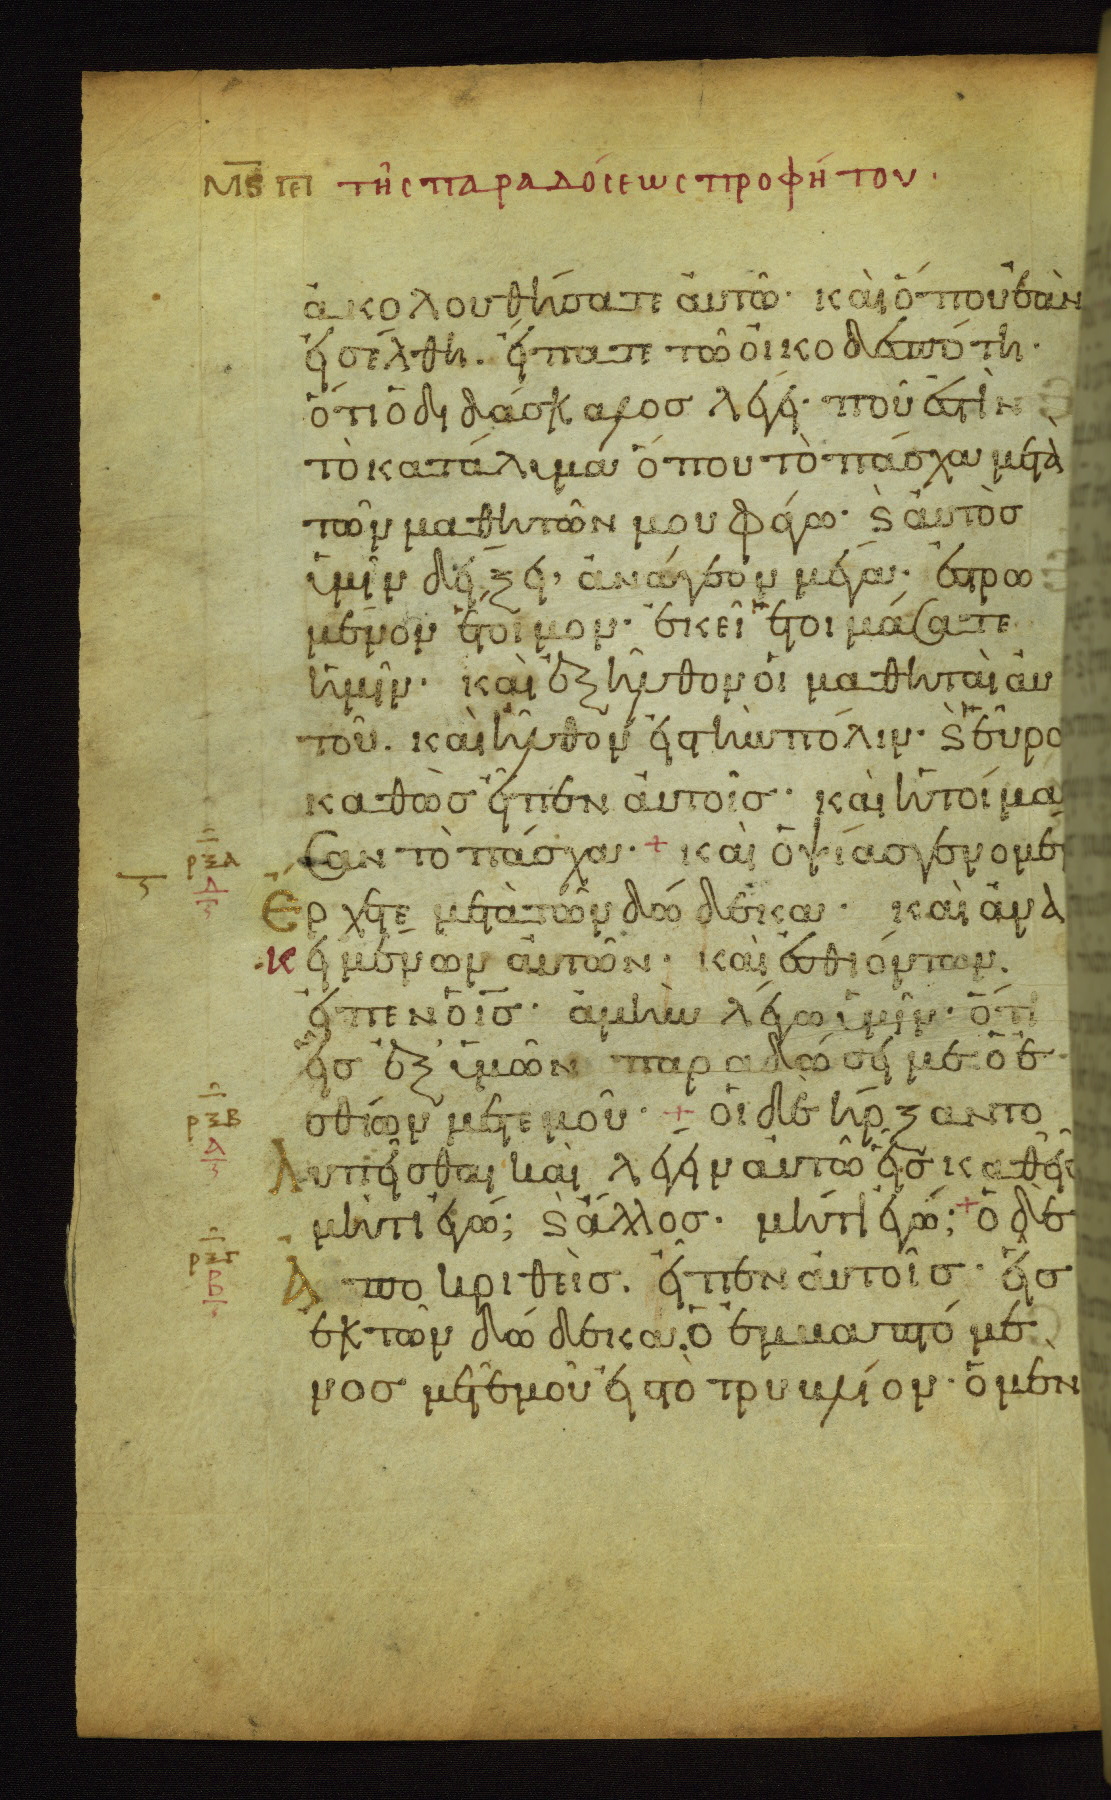 Μς πε της παραδόσεως προφήτου·
ἀκολουθήσατε αὐτῶ· καὶ ὅπου ἐὰν
εἰσέλθη. εἴπατε τῶ οἰκοδεσπότη·
ὅτι ὁ διδάσκαλος λέγει· ποῦ ἐστὶν
τὸ κατάλιμα ὅπου τὸ πάσχα μετὰ
τῶν μαθητῶν μου φάγω· ϛ αὐτὸσ
ὑμῖν δείξει· ἀνώγεον μέγα· ἐστρω
μένον ἕτοιμον· ἐκεῖ ἑτοιμάσατε
ἡμῖν· καὶ ἐξῆλθον οἱ μαθηταὶ αὐ
τοῦ. καὶ ἦλθον εἰς τὴν πόλιν· ϛ εὗρο
καθὼσ εἶπεν αὐτοῖσ· καὶ ἡτοίμα
σαν τὸ πάσχα· + καὶ ὀψίασ γενομέ
ρξα
Δ
ϛ
Ερχεται μετὰ τῶν δώδεκα· καὶ ἀνα
κειμένων αὐτῶν· καὶ ἐσθιόντων.
εἶπεν ὁ ισ· ἀμὴν λέγω ὑμῖν· ὅτι
εἷσ ἐξ ὑμῶν παραδώσει με ὁ ἐ
σθίων μετ ἐμοῦ· + οἱ δὲ ἤρξαντο
ρξΒ
Δ
ϛ
Λυπεῖσθαι καὶ λέγειν αὐτῶ εἷσ καθεὶσ
μήτι ἐγώ; ϛ ἄλλοσ· μήτι ἐγώ; + ὁ δὲ
ρξΓ
Β
ϛ
Αποκριθεὶσ. εἶπεν αὐτοῖσ· εἷσ
ἐκ τῶν δώδεκα. ὁ ἐμβαπτόμε
νοσ μετ ἐμοῦ εἰς τὸ τρυβλίον· ὁ μὲν